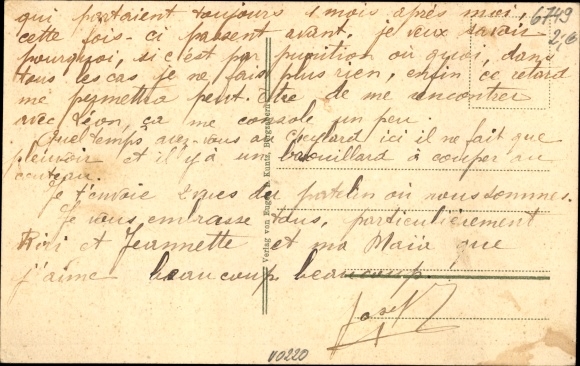 qui partaient toujours 1 mois après moi,
cette fois-ci passent avant, je veux savoir
pourquoi, si c'est par punition ou quoi, dans
tous les cas je ne fais plus rien, enfin ce retard
me permettra peut-être de me rencontrer
avec Léon, ça me console un peu.
Quel temps avez-vous au Cheylard ici il ne fait que
pleuvoir et il y a un brouillard à couper au
couteau.
Je t'envoie 2 vues du patelin où nous sommes.
Je vous embrasse tous, particulièrement
Riri et Jeannette et ma Maia que
j'aime beaucoup beaucoup.
Verlag von Eugen Kuntz,
6749
2,6
V0220